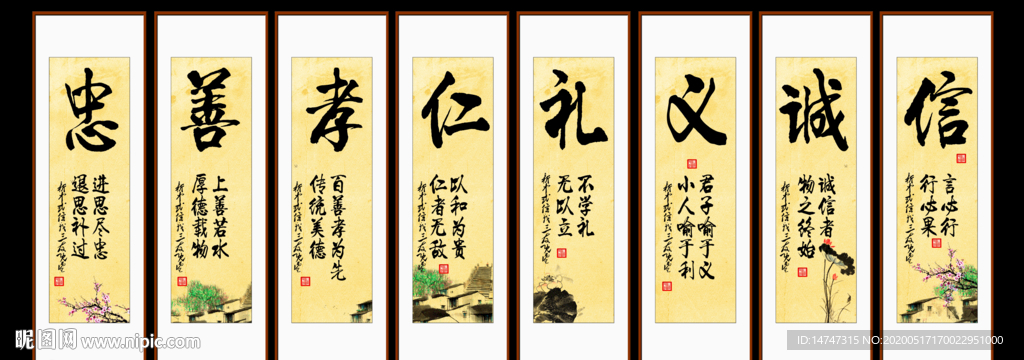 忠
进思尽忠
退思补过
善
上善若水
厚德载物
孝
百善孝为先
传统美德
仁
以和为贵
仁者无敌
礼
不学礼
无以立
义
君子喻于义
小人喻于利
诚
诚信者
物之终始
信
言必行
行必果
昵图网 www.nipic.com
ID:14747315 NO:20200517170022951000